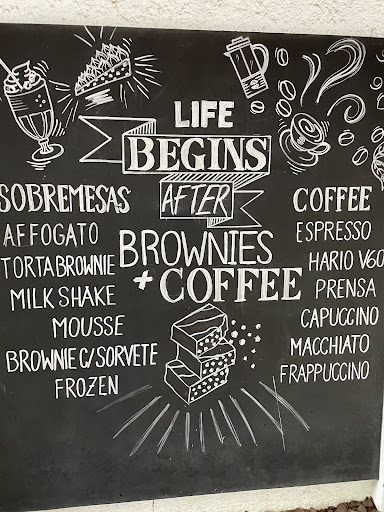 LIFE
BEGINS
AFTER
BROWNIES
+ COFFEE
SOBREMESAS
AFFOGATO
TORTA BROWNIE
MILK SHAKE
MOUSSE
BROWNIE C/ SORVETE
FROZEN
COFFEE
ESPRESSO
HARIO V60
PRENSA
CAPUCCINO
MACCHIATO
FRAPPUCCINO